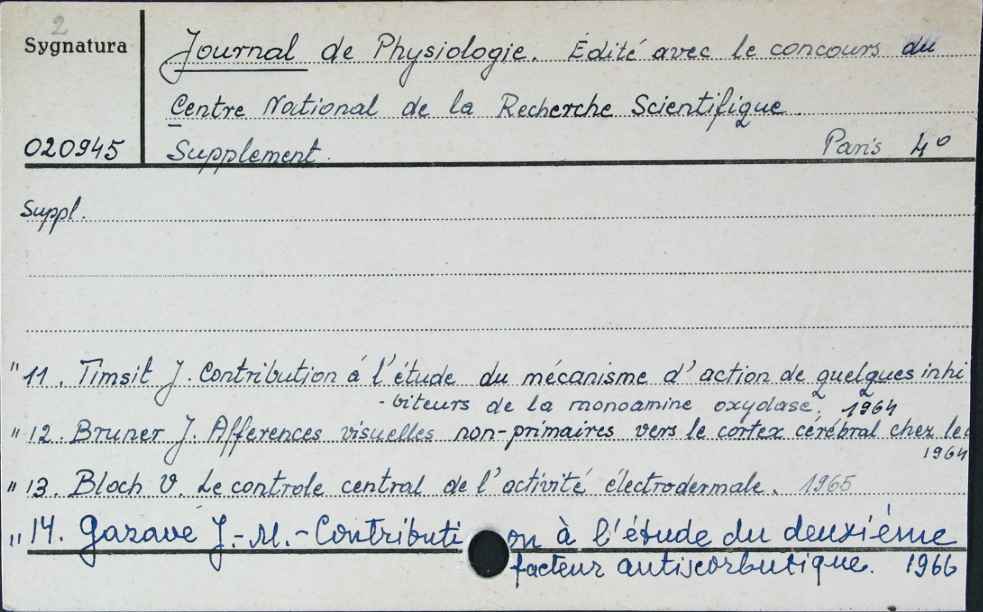 2
Sygnatura
Journal de Physiologie. Édité avec le concours du
Centre National de la Recherche Scientifique.
020945
Supplement. Paris 4°
Suppl.
" 11. Timsit J. Contribution á l'étude du mécanisme d'action de quelques inhi
-biteurs de la monoamine oxydase, 1964
" 12. Bruner J. Afferences visuelles non-primaires vers le cortex cérébral chez le
1964
" 13. Bloch V. Le controle central de l'activité électrodermale. 1965
" 14. Gazave J.-M.-Contribution à l'étude du deuxiéme
facteur antiscorbutique. 1966